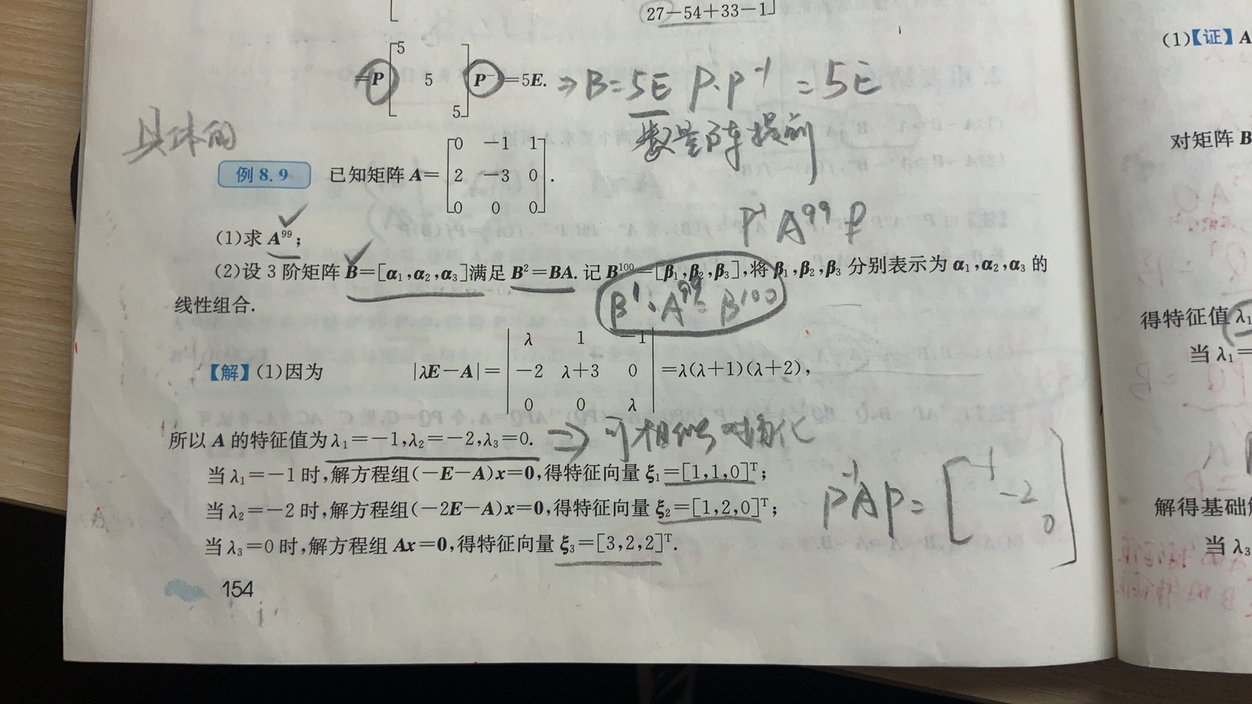 27−54+33−1
=P[5 5 5]P⁻¹=5E. ⇒B=5E P·P⁻¹=5E
数量阵提前
具体的
例8.9 已知矩阵A=[0 −1 1
2 −3 0
0 0 0].
P⁻¹A⁹⁹P
(1)求A⁹⁹;
(2)设3阶矩阵B=[α₁,α₂,α₃]满足B²=BA.记B¹⁰⁰=[β₁,β₂,β₃],将β₁,β₂,β₃分别表示为α₁,α₂,α₃的
线性组合.
B¹·A⁹⁹=B¹⁰⁰
【解】(1)因为 |λE−A|=|λ 1 −1
−2 λ+3 0
0 0 λ|=λ(λ+1)(λ+2),
所以A的特征值为λ₁=−1,λ₂=−2,λ₃=0. ⇒可相似对角化
当λ₁=−1时,解方程组(−E−A)x=0,得特征向量ξ₁=[1,1,0]ᵀ;
当λ₂=−2时,解方程组(−2E−A)x=0,得特征向量ξ₂=[1,2,0]ᵀ;
当λ₃=0时,解方程组Ax=0,得特征向量ξ₃=[3,2,2]ᵀ.
P⁻¹AP=[−1 −2 0]
154
(1)【证】A
对矩阵B
得特征值λ₁
当λ₁=
解得基础
当λ₃